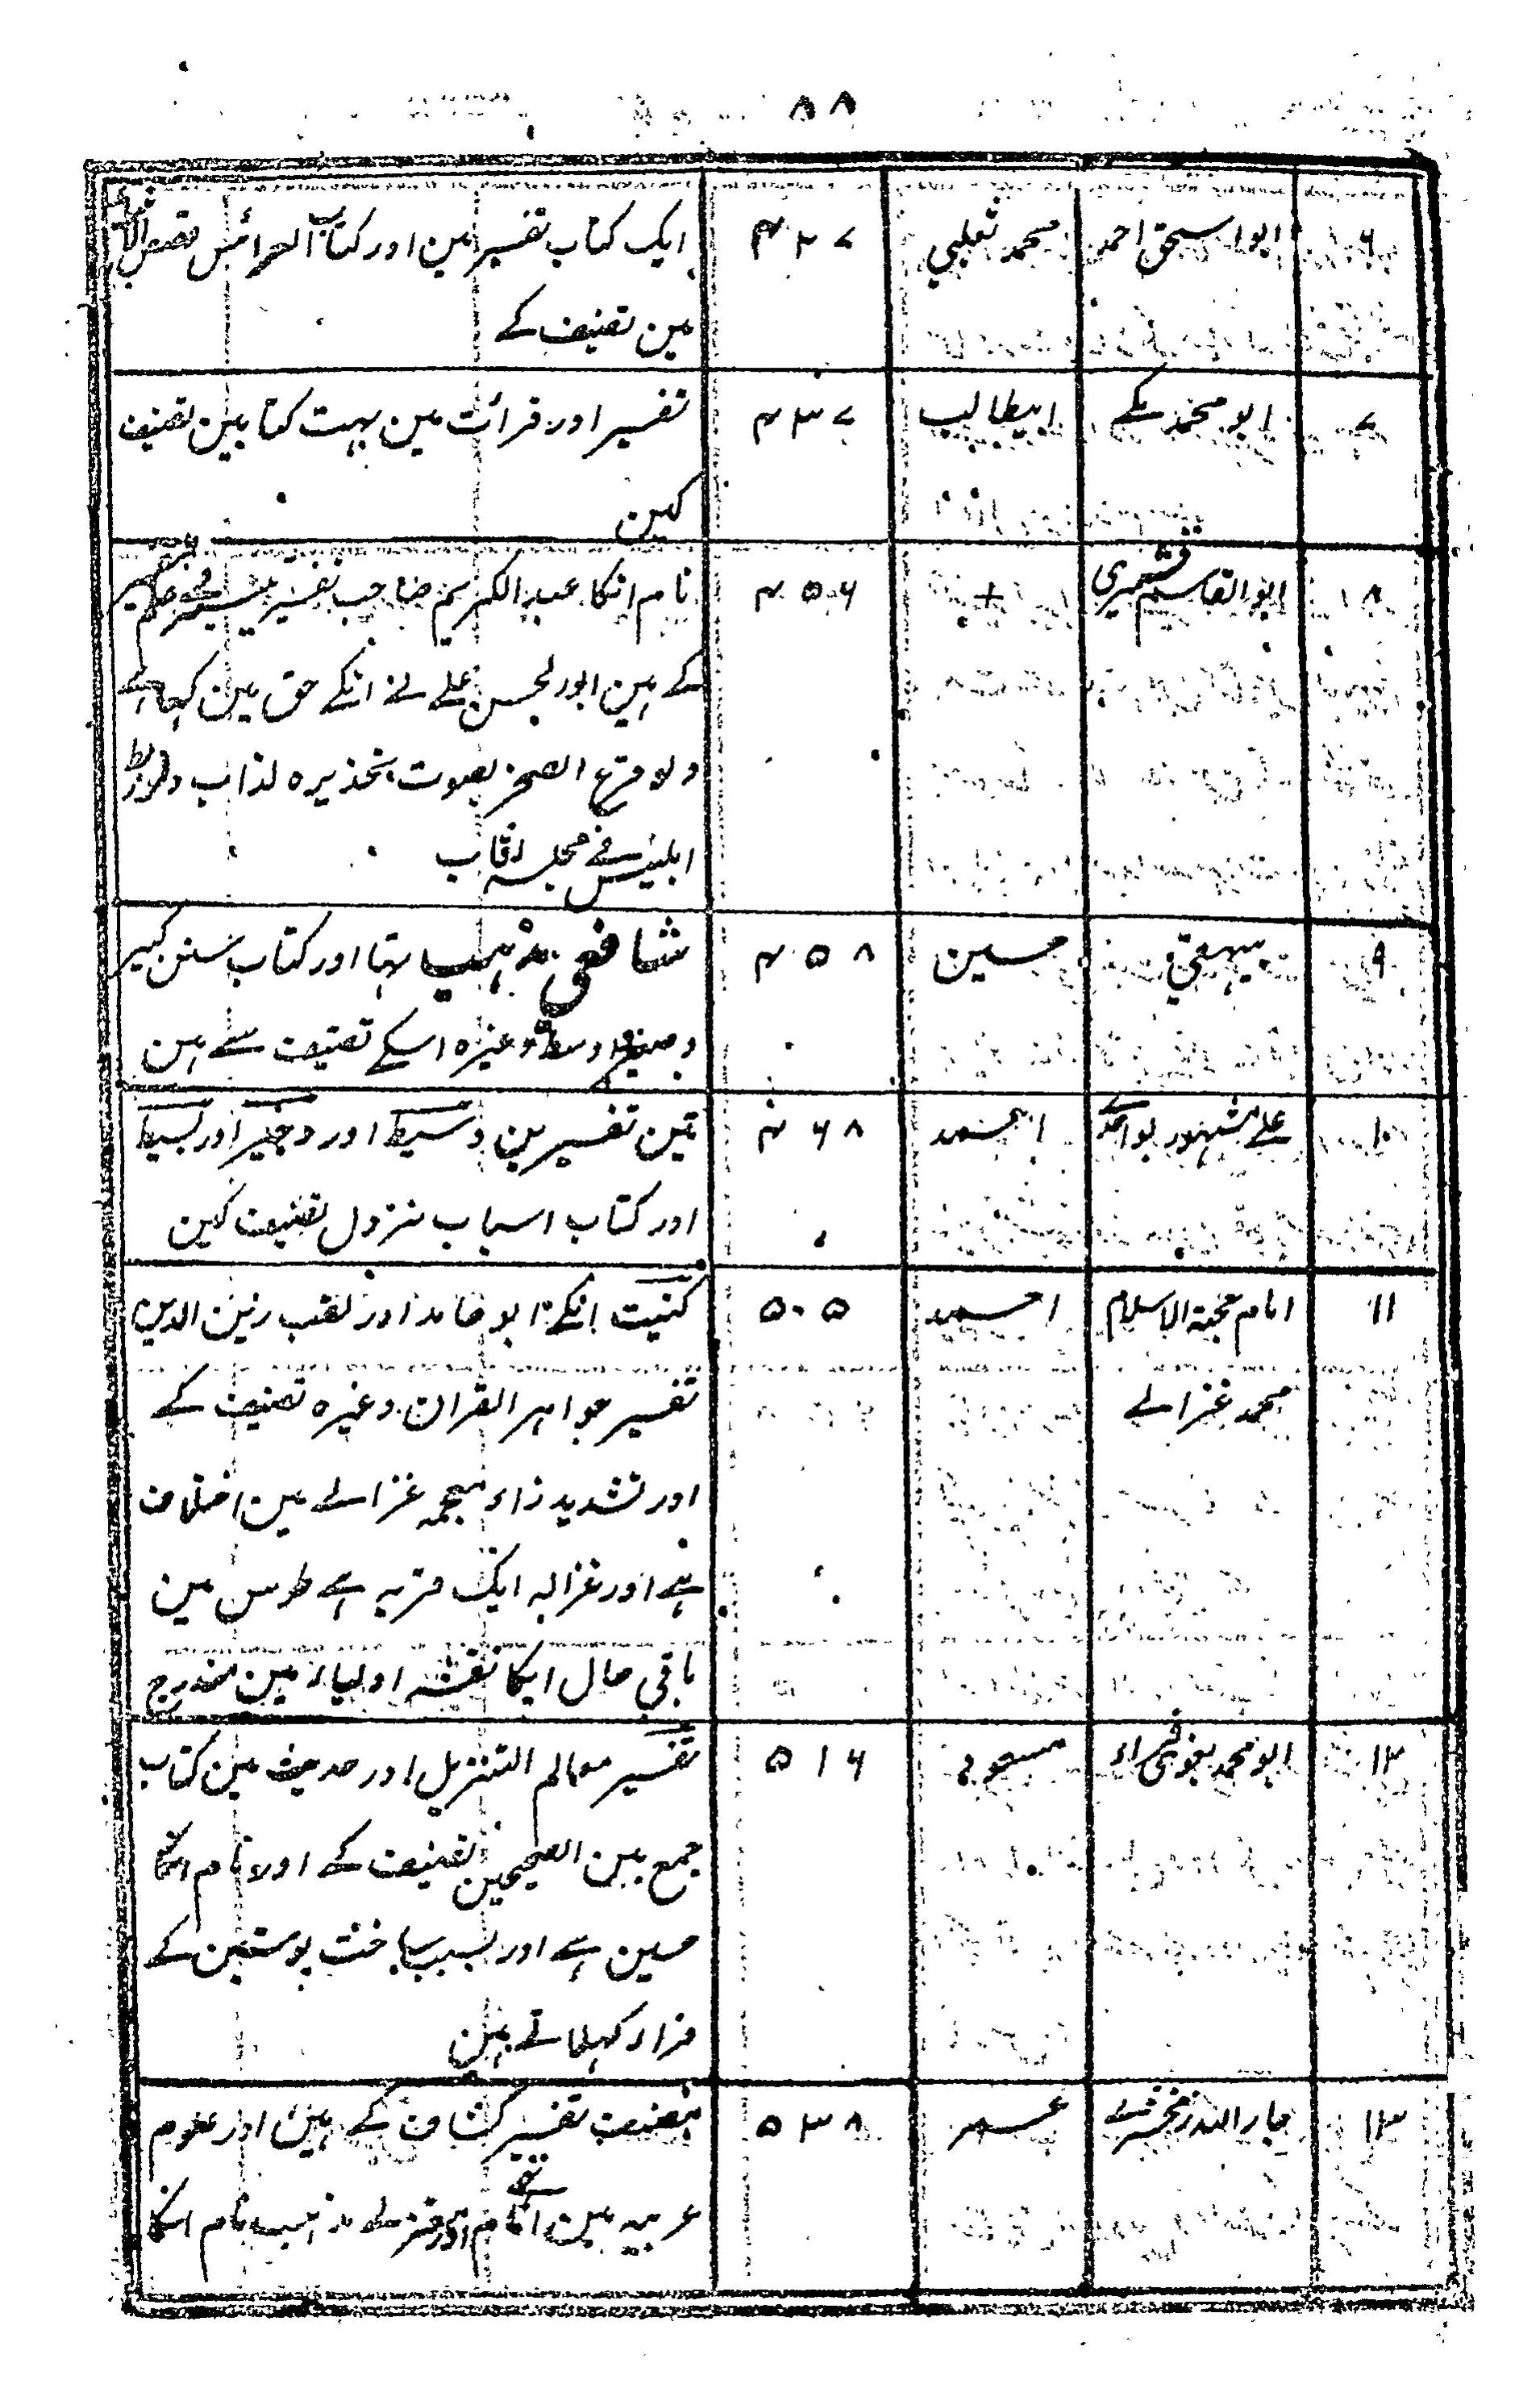 ۸۸
۶ ابو اسحق احمد محمد ثعلبی ۴۲۷ ایک کتاب تفسیر مین اور کتاب العرائس قصص الانبیا
مین تصنیف کے
۷ ابو محمد مکے ابیطالب ۴۳۷ تفسیر اور قرائت مین بہت کتابین تصنیف
کین
۸ ابو القاسم قشیری + ۴۵۶ نام انکا عبد الکریم صاحب تفسیر
کے ہین ابو الحسن علے نے انکے حق مین کہا ہے
ولو قرع الصخر بصوت تحذیره لذاب ولو ربط
ابلیس فے مجلسہ لتاب
۹ بیہقی حسین ۴۵۸ شافعی مذہب تہا اور کتاب سنن کبیر
و صغیر اوسط وغیرہ اسکے تصنیف سے ہین
۱۰ علے مشہور بواحدے احمد ۴۶۸ تین تفسیرین وسیط اور وجیز اور بسیط
اور کتاب اسباب نزول تصنیف کین
۱۱ امام حجۃ الاسلام احمد ۵۰۵ کنیت انکے ابو حامد اور لقب زین الدین
محمد غزالے تفسیر جواہر القران وغیرہ تصنیف کے
اور تشدید زاء معجمہ غزالے مین اختلاف
ہے اور غزالہ ایک قریہ ہے طوس مین
باقی حال انکا نقشہ اولیاء مین مندرج
۱۲ ابو محمد بغوی فراء مسعود ۵۱۶ تفسیر معالم التنزیل اور حدیث مین کتاب
جمع بین الصحیحین تصنیف کے اور نام انکا
حسین ہے اور بسبب ساخت پوستین کے
فراء کہلاتے ہین
۱۳ جار اللہ زمخشرے عمر ۵۳۸ مصنف تفسیر کشاف کے ہین اور علوم
عربیہ مین امام اور معتزلے مذہب نام انکا